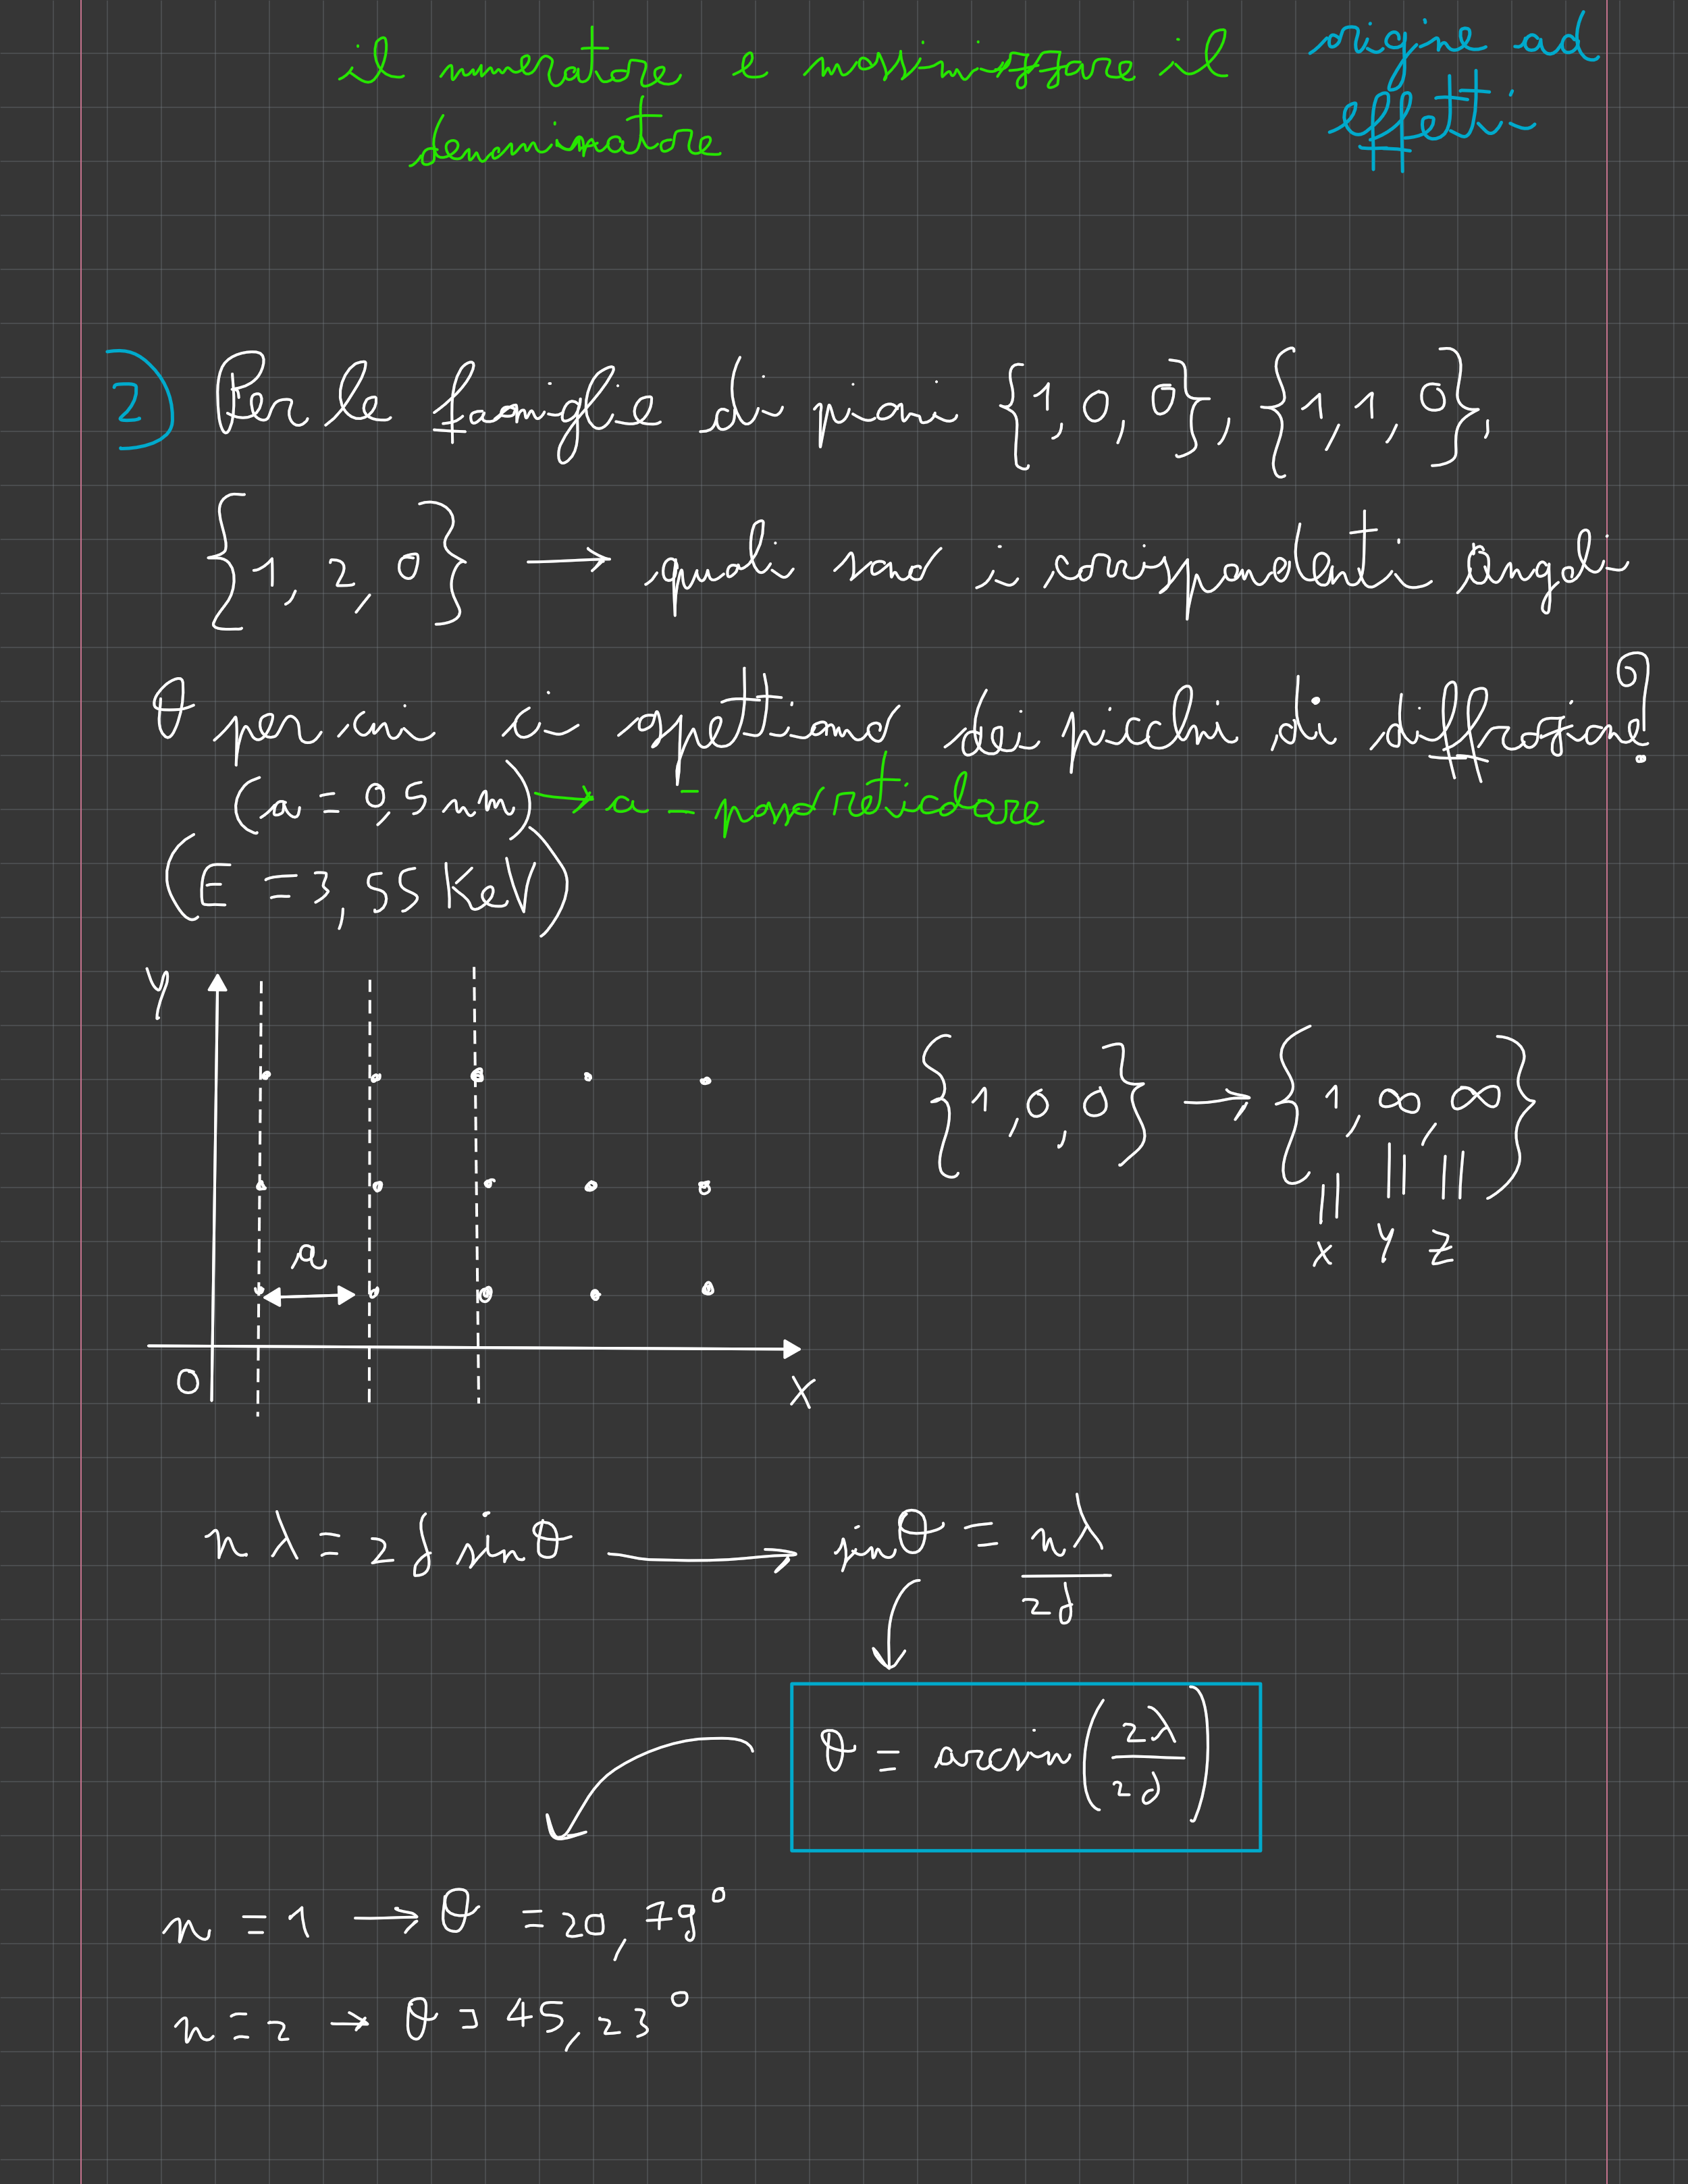 il numeratore e massimizzare il
denominatore
origine ad
effetti
2) Per le famiglie di piani {1, 0, 0}, {1, 1, 0},
{1, 2, 0} → quali sono i corrispondenti angoli
θ per cui ci aspettiamo dei picchi di diffrazione?
(a = 0,5 nm) → a = passo reticolare
(E = 3,55 KeV)
y
a
0
x
{1, 0, 0} → {1, ∞, ∞}
|| || ||
x y z
nλ = 2d sinθ → sinθ = nλ/2d
θ = arcsin(2λ/2d)
n = 1 → θ = 20,79°
n = 2 → θ = 45,23°